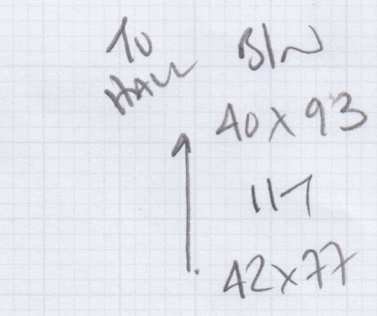 TO
HALL
B/W
40X93
117
42X77